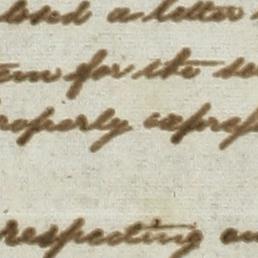 losed a letter
em for the
roperly expres
respecting